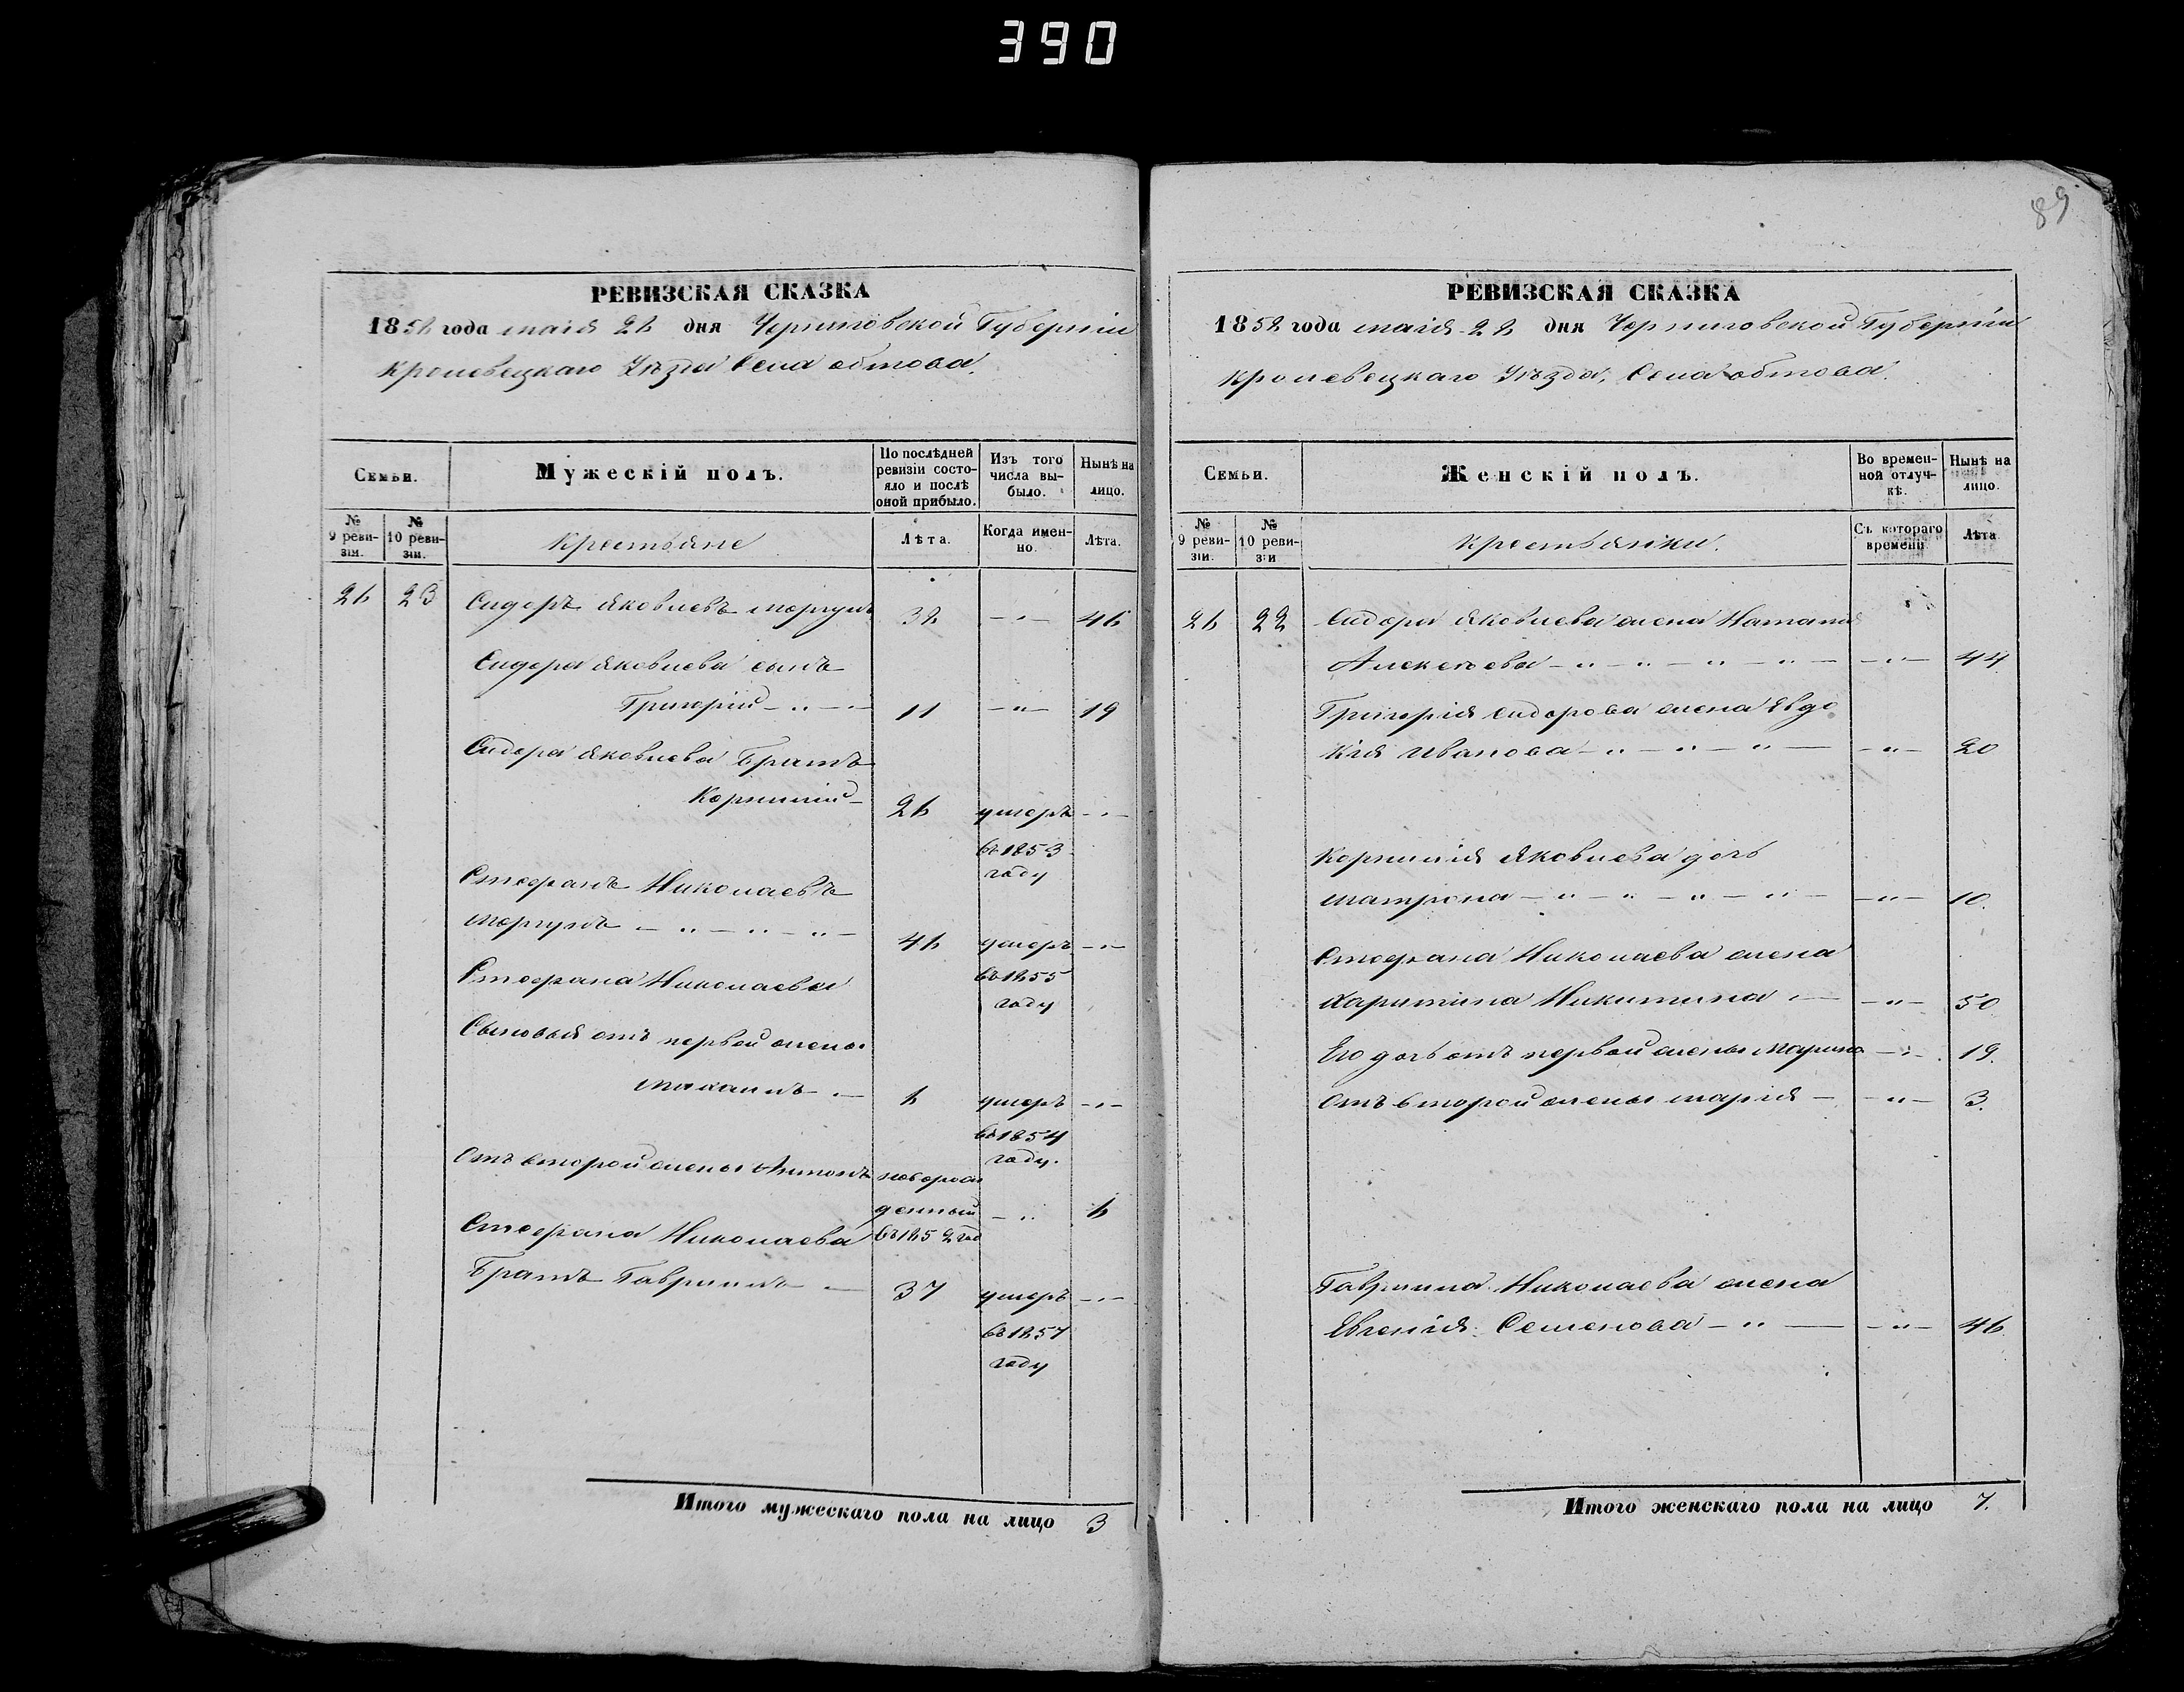 390
89
РЕВИЗСКАЯ СКАЗКА
1858 года маія 28 дня Черниговской Губерніи
Кролевецкаго Уѣзда Села обтова.
Семьи.
Мужескій полъ.
По послѣдней ревизіи состояло и послѣ оной прибыло.
Изъ того числа выбыло.
Нынѣ на лицо.
№ 9 ревизіи.
№ 10 ревизіи.
Крестьяне
Лѣта.
Когда именно.
Лѣта.
26 23 Сидоръ Яковлевъ моргунъ 32 — 46
Сидора Яковлева сынъ
Григорій 11 — 19
Сидора Яковлева Братъ
Корнилій 26 умеръ —
въ 1853
году
Стефанъ Николаевъ
моргунъ 46 умеръ —
въ 1855
году
Стефана Николаева
Сыновья отъ первой жены
6 умеръ —
въ 1854
году.
Отъ второй жены Антонъ новорож
денный — 6
въ 1852 год
Стефана Николаева
Братъ Гавриилъ — 37 умеръ —
въ 1857
году
Итого мужескаго пола на лицо 3
РЕВИЗСКАЯ СКАЗКА
1858 года маія 28 дня Черниговской Губерніи
Кролевецкаго Уѣзда, Села обтова.
Семьи.
Женскій полъ.
Во временной отлучкѣ.
Нынѣ на лицо.
№ 9 ревизіи.
№ 10 ревизіи
Крестьянки.
Съ котораго времени
Лѣта
26 22 Сидора Яковлева жена Наталія
Алексѣева — 44
Григорія Сидорова жена Евдо
кія Иванова — 20
Корнилія Яковлева дочь
матрона — 10.
Стефана Николаева жена
Харитина Никитина — 50
Его дочь отъ первой жены Марина — 19.
Отъ второй жены марія — 3.
Гавриила Николаева жена
Евгенія Семенова — 46.
Итого женскаго пола на лицо 7.